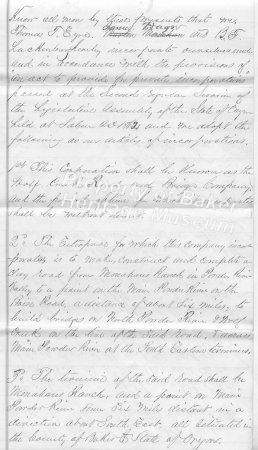 Know all men by these presents that we
Thomas T. and B. F.
incorporate ourselves under
and in accordance with the provisions of
an act to provide for private incorporations
passed at the Second Regular Session of
the Legislative Assembly of the State of
held at Salem AD and we adopt the
following as our articles of incorporations.
1st This Corporation shall be known as the
Wolf Creek Road and Bridge Company
and the
shall be without limit
2d The for which this Company incor-
porates is to make, construct and complete a
Road from Monahans Ranch in Powder River
Valley to a point on the Main Powder River on the
Road, a distance of about Six Miles, to
build bridges on North Powder River & Wolf
Creek on the line of the Said Road, & across
Main Powder River at the Eastern terminus.
3d The termini of the Said Road shall be
Monahans Ranch, and a point on Main
Powder River some Six Miles distant in a
direction about South East, all situated in
the County of Baker & State of Oregon.
Property of Baker
Heritage Museum